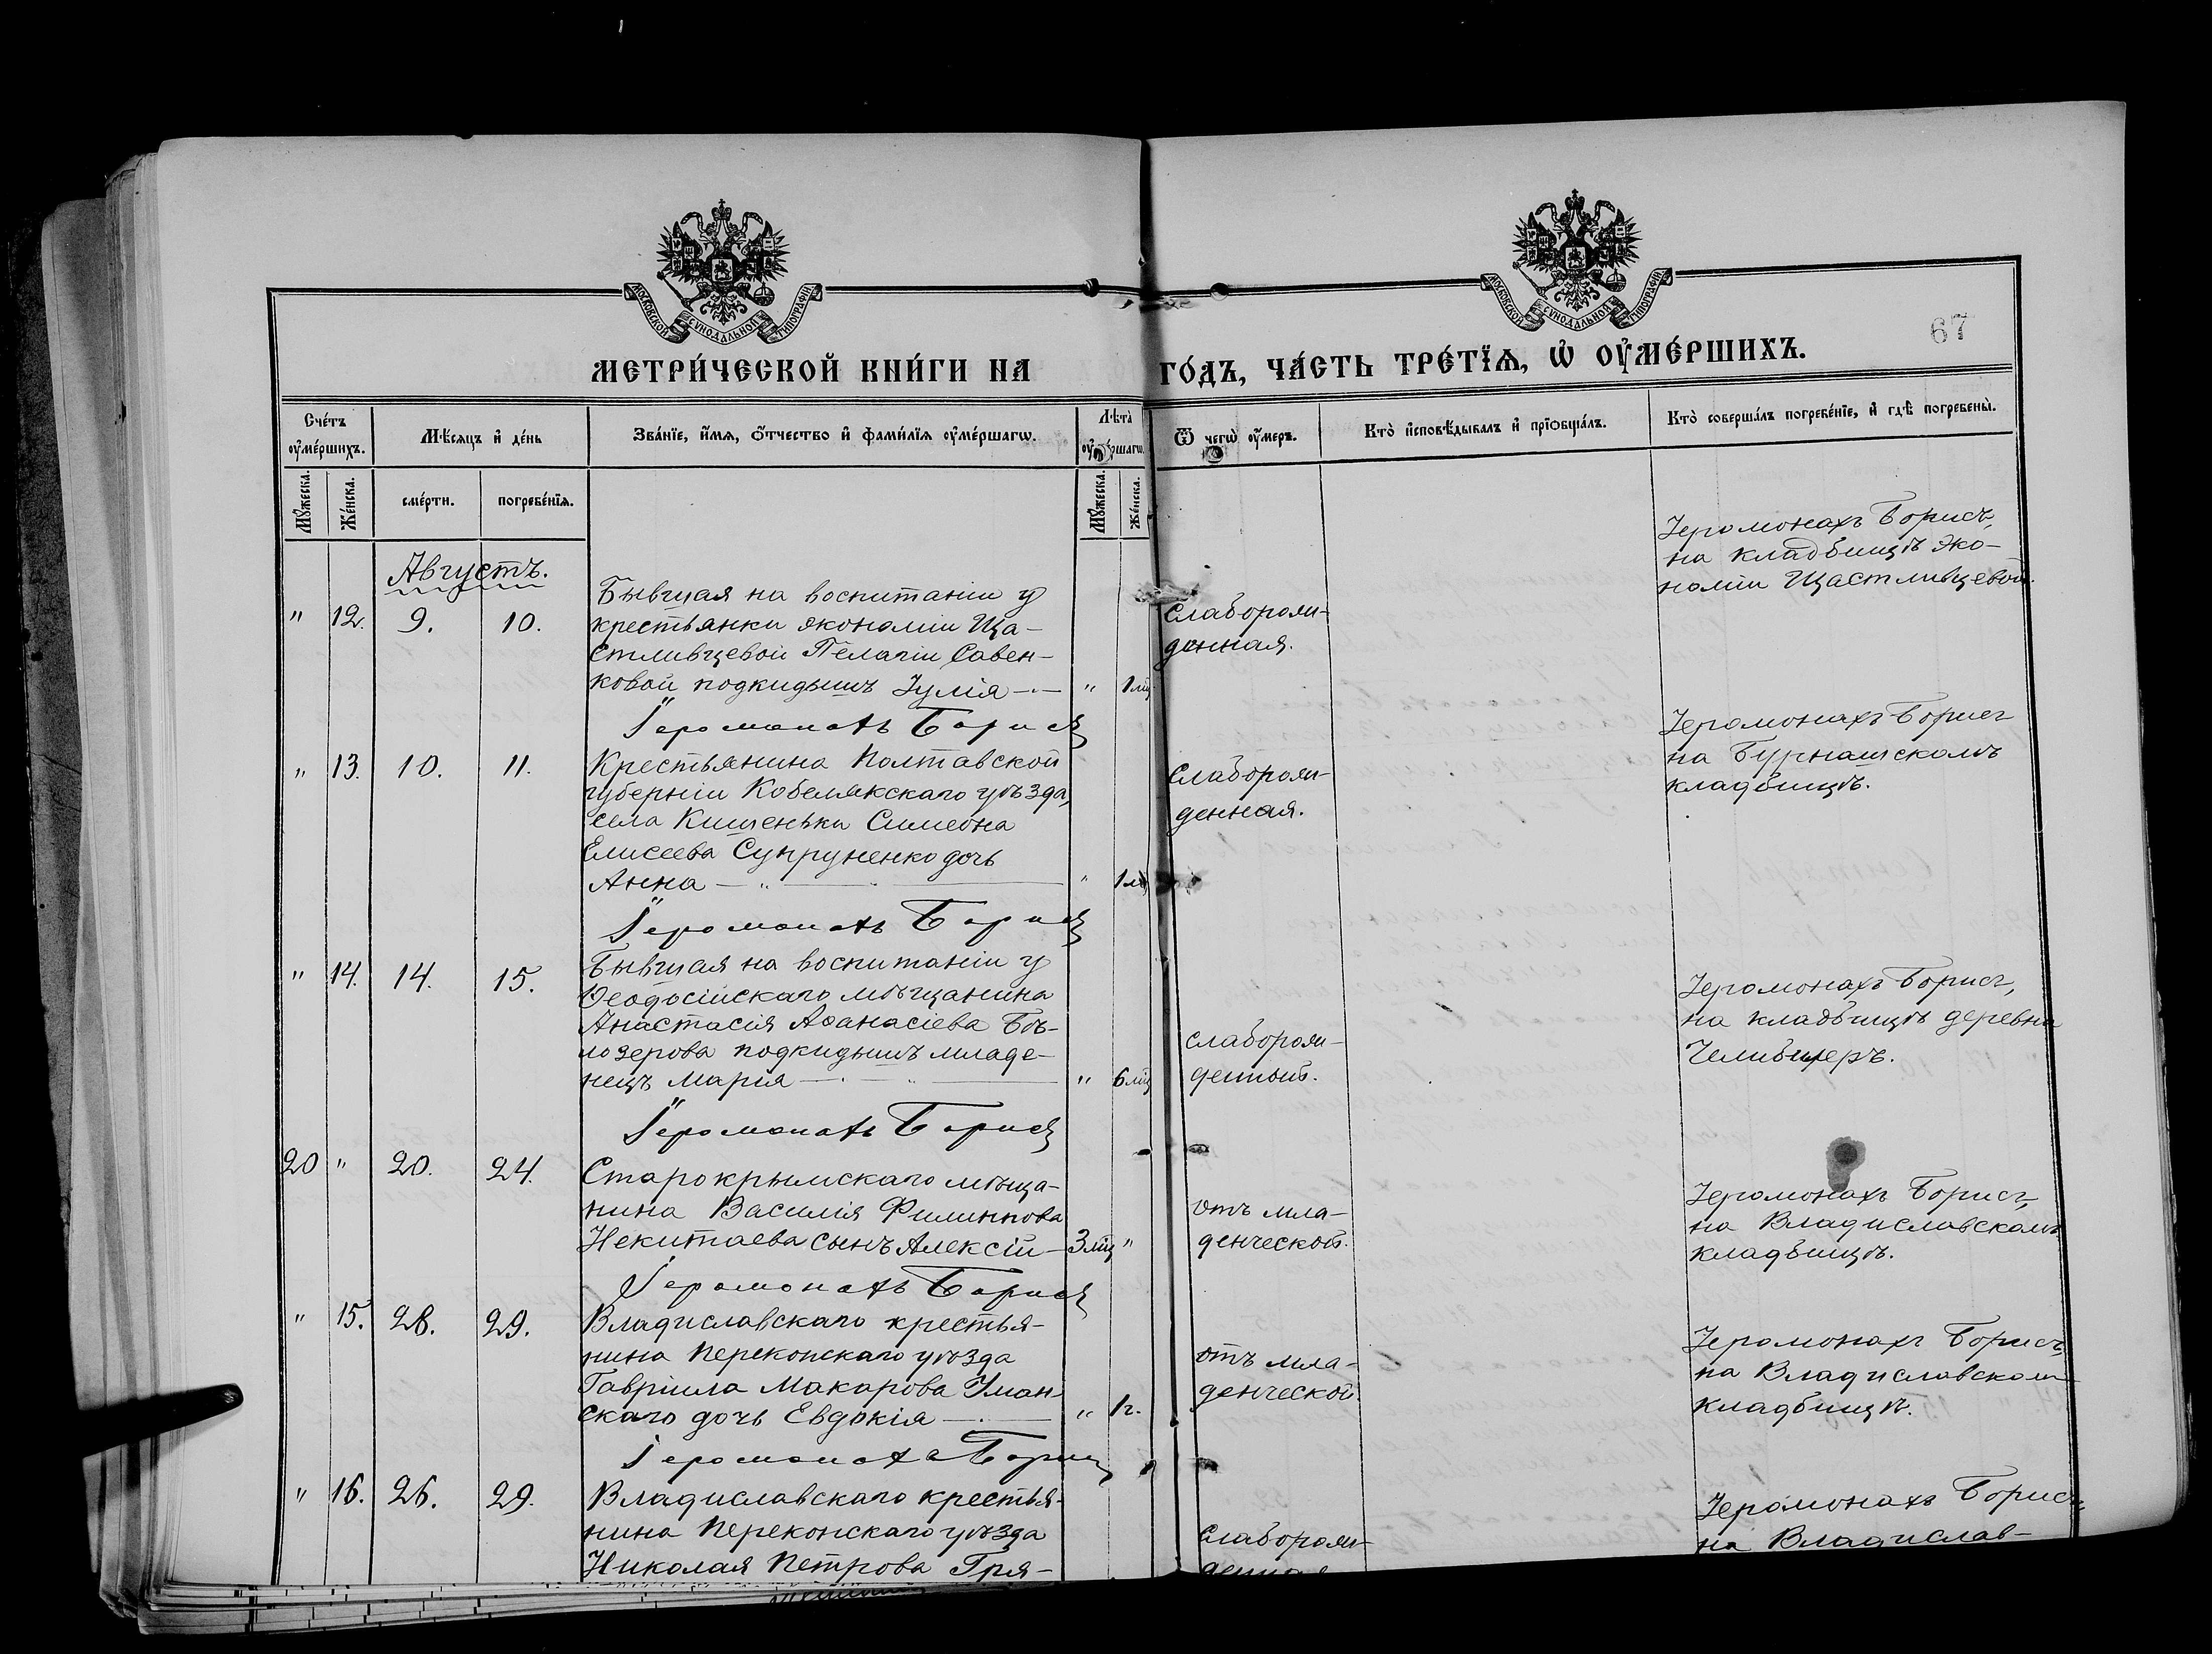 МОСКОВСКОЙ СѴНОДАЛЬНОЙ ТИПОГРАФІИ
МОСКОВСКОЙ СѴНОДАЛЬНОЙ ТИПОГРАФІИ
67
МЕТРИ́ЧЕСКОЙ КНИ́ГИ НА
ГО́ДЪ, ЧА́СТЬ ТРЕ́ТЇѦ, Ѡ҆ ОУ҆МЕ́РШИХЪ.
Сче́тъ
оу҆ме́ршихъ.
Мѣ́сѧцъ и҆ де́нь
Зва́нїе, и҆́мѧ, ѻ҆́тчество и҆ фами́лїѧ оу҆ме́ршагѡ.
Лѣта̀
оу҆ме́ршагѡ.
Ѿ чегѡ̀ оу҆́меръ.
Кто̀ и҆сповѣ́дывалъ и҆ прїѡбща́лъ.
Кто̀ соверша́лъ погребе́нїе, и҆ гдѣ̀ погребены̀.
Мꙋ́жеска.
Же́нска.
сме́рти.
погребе́нїѧ.
Мꙋ́жеска.
Же́нска.
Августъ.
" 12. 9. 10.
Бывшая на воспитаніи у
крестьянки экономіи Ща-
стливцевой Пелагіи Савен-
ковой подкидышъ Іулія " 1 мц
слаборож-
денная.
Іеромонахъ Борисъ,
на кладбищѣ эко-
номіи Щастливцевой.
Іеромонахъ Борисъ
" 13. 10. 11.
Крестьянина Полтавской
губерніи Кобелякскаго уѣзда,
села Кишеньки Симеона
Елисеева Супруненко дочь
Анна " 1 мц
Слаборож-
денная.
Іеромонахъ Борисъ
на Бурнашскомъ
кладбищѣ.
Іеромонахъ Борисъ
" 14. 14. 15.
Бывшая на воспитаніи у
Ѳеодосійскаго мѣщанина
Анастасія Аѳанасіева Бѣ-
лозерова подкидышъ младе-
нецъ Марія " 6 мц
слаборож-
денный.
Іеромонахъ Борисъ,
на кладбищѣ деревни
Іеромонахъ Борисъ
20 " 20. 24.
Старокрымскаго мѣща-
нина Василія Филиппова
Некитаева сынъ Алексій 3 мц "
отъ мла-
денческой.
Іеромонахъ Борисъ,
на Владиславскомъ
кладбищѣ.
Іеромонахъ Борисъ
" 15. 28. 29.
Владиславскаго крестья-
нина Перекопскаго уѣзда
Гавріила Макарова Уман-
скаго дочь Евдокія " 1 г.
отъ мла-
денческой.
Іеромонахъ Борисъ,
на Владиславском
кладбищѣ.
Іеромонахъ Борисъ
" 16. 26. 29.
Владиславскаго крестья-
нина Перекопскаго уѣзда
Николая Петрова Гря-
слаборож-
денная
Іеромонахъ Борисъ,
на Владислав-